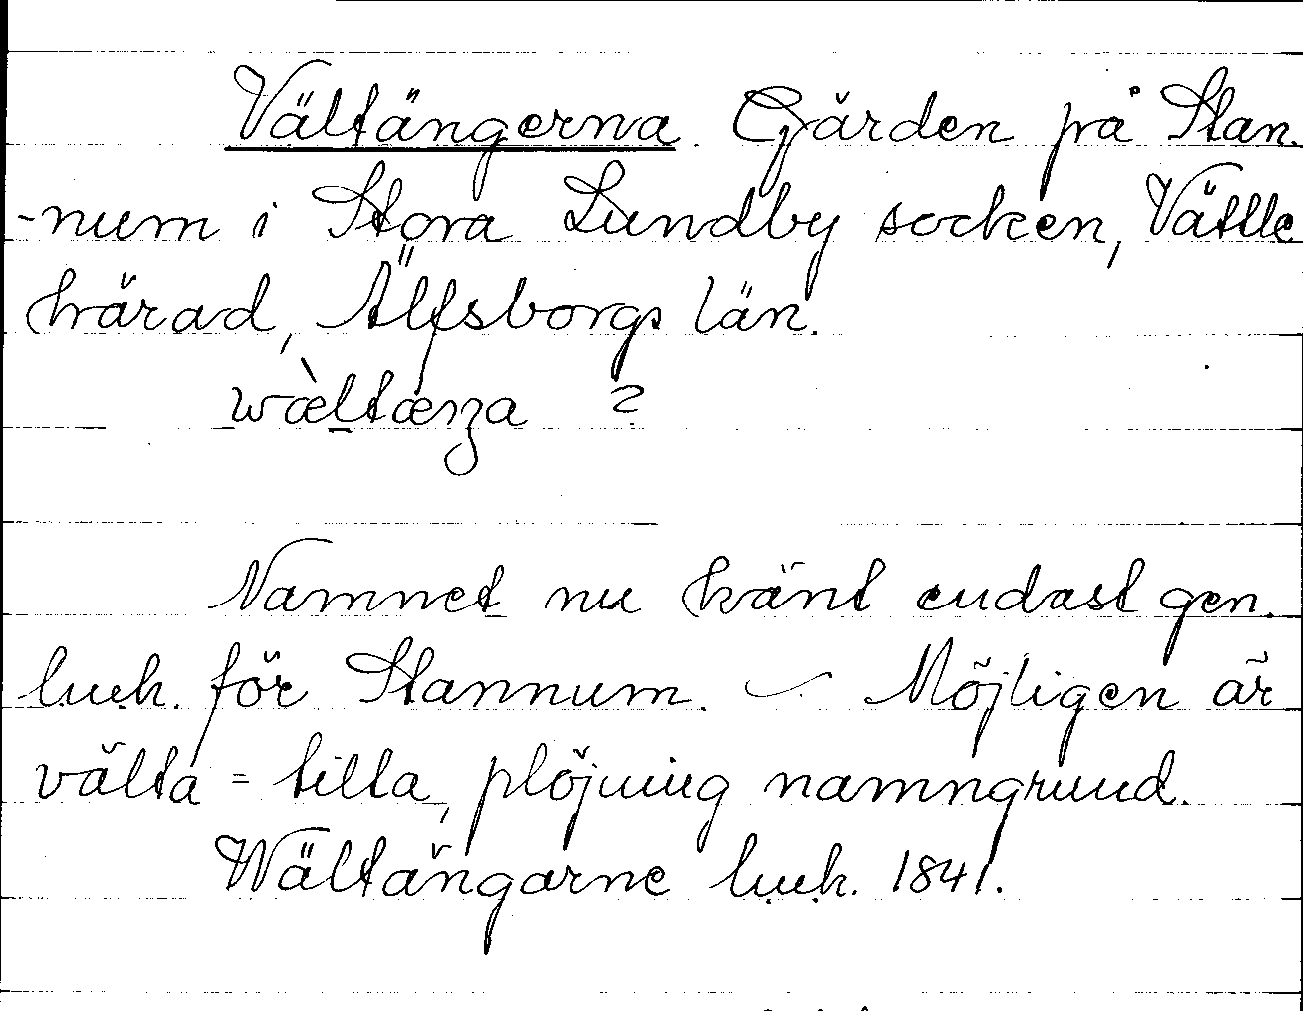 Vältängerna. Gärden på Stan-
-num i Stora Lundby socken, Vättle
härad, Älfsborgs län.
wæ̀ltæŋa ?
Namnet nu känt endast gen.
l.u.k. för Stannum. — Möjligen är
välta = tilta, plöjning namngrund.
Wältängarne l.u.k. 1841.